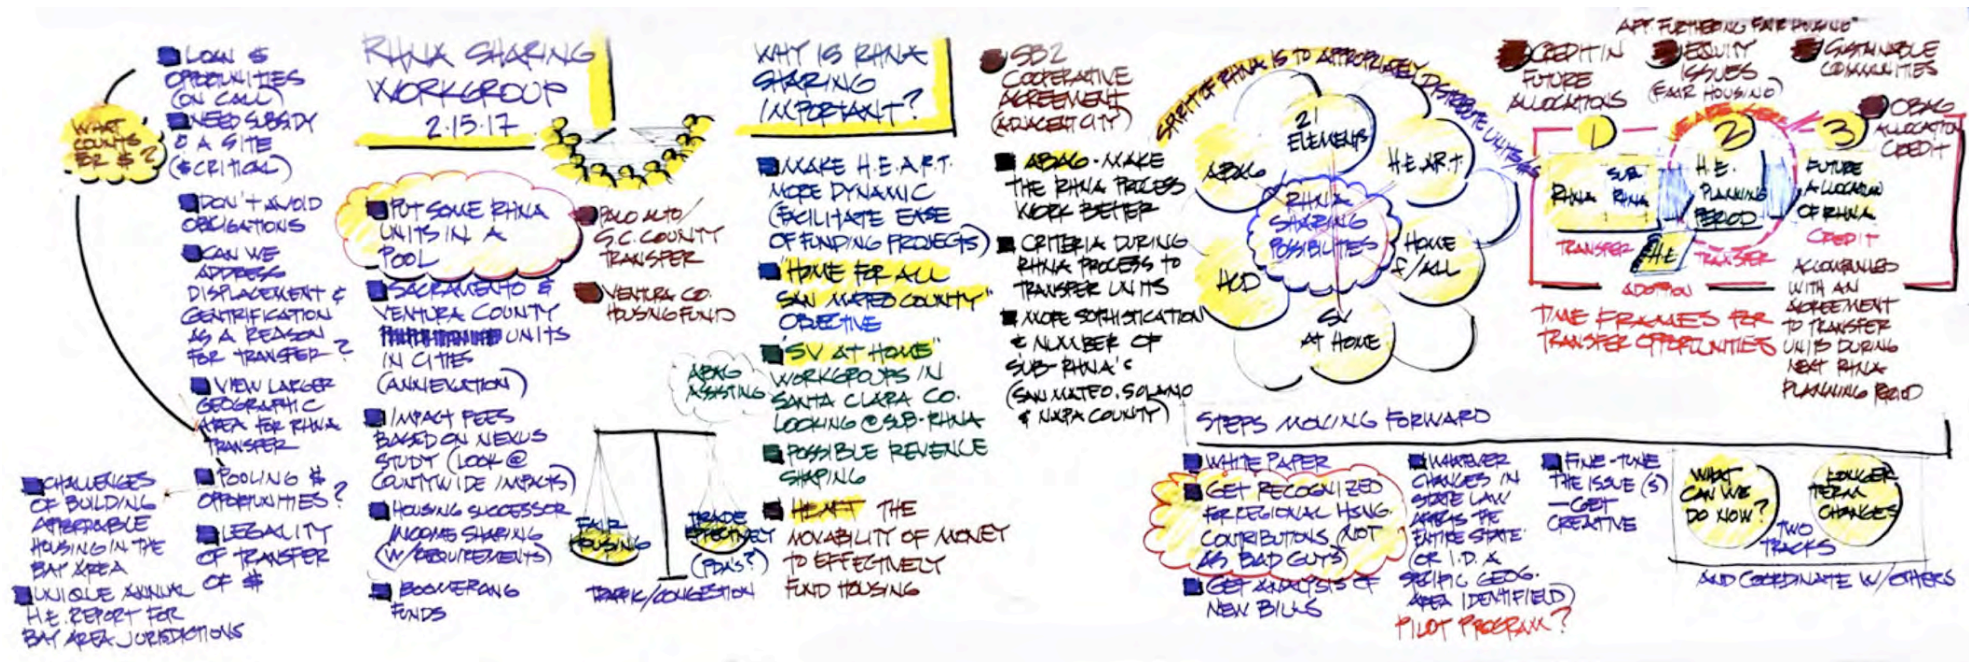 WHAT
COUNTS
FOR $?
LOAN $
OPPORTUNITIES
(ON CALL)
NEED SUBSIDY
& A SITE
($ CRITICAL)
DON'T AVOID
OBLIGATIONS
CAN WE
ADDRESS
DISPLACEMENT &
GENTRIFICATION
AS A REASON
FOR TRANSFER?
VIEW LARGER
GEOGRAPHIC
AREA FOR RHNA
TRANSFER
POOLING $
OPPORTUNITIES?
LEGALITY
OF TRANSFER
OF $
CHALLENGES
OF BUILDING
AFFORDABLE
HOUSING IN THE
BAY AREA
UNIQUE ANNUAL
H.E. REPORT FOR
BAY AREA JURISDICTIONS
RHNA SHARING
WORKGROUP
2.15.17
PUT SOME RHNA
UNITS IN A
POOL
SACRAMENTO &
VENTURA COUNTY
UNITS
IN CITIES
(ANNEXATION)
IMPACT FEES
BASED ON NEXUS
STUDY (LOOK @
COUNTYWIDE IMPACTS)
HOUSING SUCCESSOR
INCOME SHARING
(W/REQUIREMENTS)
BOOMERANG
FUNDS
PALO ALTO/
S.C. COUNTY
TRANSFER
VENTURA CO.
HOUSING FUND
ABAG
ASSISTING
FAIR
HOUSING
TRADE
EFFECTIVELY
(PDA'S?)
TRAFFIC/CONGESTION
WHY IS RHNA
SHARING
IMPORTANT?
MAKE H.E.A.R.T.
MORE DYNAMIC
(FACILITATE EASE
OF FUNDING PROJECTS)
"HOME FOR ALL
SAN MATEO COUNTY"
OBJECTIVE
"SV AT HOME"
WORKGROUPS IN
SANTA CLARA CO.
LOOKING @ SUB-RHNA
POSSIBLE REVENUE
SHARING
HEART THE
MOVABILITY OF MONEY
TO EFFECTIVELY
FUND HOUSING
SB2
COOPERATIVE
AGREEMENT
(ADJACENT CITY)
ABAG - MAKE
THE RHNA PROCESS
WORK BETTER
CRITERIA DURING
RHNA PROCESS TO
TRANSFER UNITS
MORE SOPHISTICATION
& NUMBER OF
SUB-RHNA'S
(SAN MATEO, SOLANO
& NAPA COUNTY)
SPIRIT OF RHNA IS TO APPROPRIATELY DISTRIBUTE UNITS & $
21
ELEMENTS
ABAG
H.E.A.R.T.
RHNA
SHARING
POSSIBILITIES
HCD
HOME
F/ALL
SV
AT HOME
AFF. FURTHERING FAIR HOUSING"
CREDIT IN
FUTURE
ALLOCATIONS
EQUITY
ISSUES
(FAIR HOUSING)
SUSTAINABLE
COMMUNITIES
OBAG
ALLOCATION
CREDIT
WE ARE HERE
1
2
3
RHNA
SUB
RHNA
H.E.
PLANNING
PERIOD
FUTURE
ALLOCATION
OF RHNA
CREDIT
TRANSFER
H.E.
TRANSFER
ADOPTION
ACCOMPANIED
WITH AN
AGREEMENT
TO TRANSFER
UNITS DURING
NEXT RHNA
PLANNING PERIOD
TIME FRAMES FOR
TRANSFER OPPORTUNITIES
STEPS MOVING FORWARD
WHITE PAPER
GET RECOGNIZED
FOR REGIONAL HSNG.
CONTRIBUTIONS (NOT
AS BAD GUYS)
GET ANALYSIS OF
NEW BILLS
WHATEVER
CHANGES IN
STATE LAW
AFFECTS THE
ENTIRE STATE
OR I.D. A
SPECIFIC GEOG.
AREA IDENTIFIED)
PILOT PROGRAM?
FINE-TUNE
THE ISSUE(S)
— GET
CREATIVE
WHAT
CAN WE
DO NOW?
LONGER
TERM
CHANGES
TWO
TRACKS
AND COORDINATE W/OTHERS